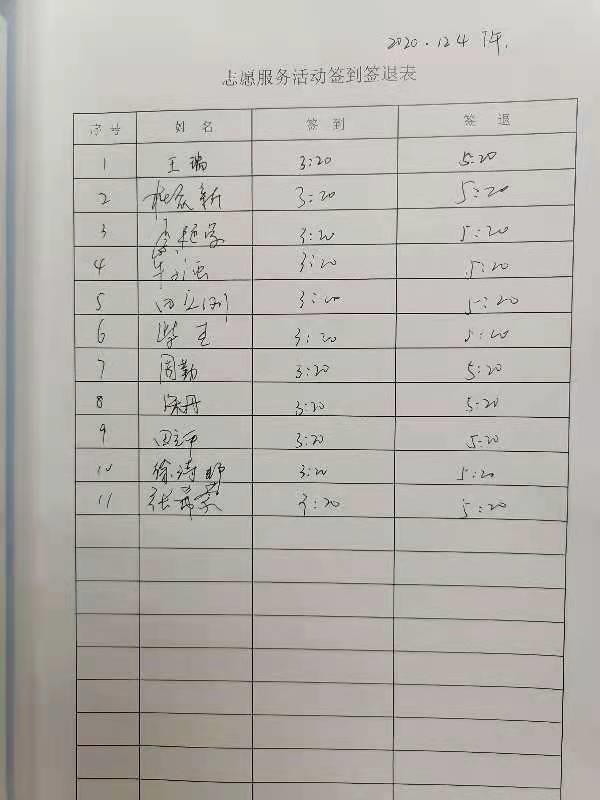 2020.12.4 下午.
志愿服务活动签到签退表
序号 姓名 签到 签退
1 王瑞 3:20 5:20
2 新 3:20 5:20
3 3:20 5:20
4 3:20 5:20
5 3:20 5:20
6 柴 3:20 5:20
7 周勤 3:20 5:20
8 丹 3:20 5:20
9 田 3:20 5:20
10 徐诗 3:20 5:20
11 张 3:20 5:20